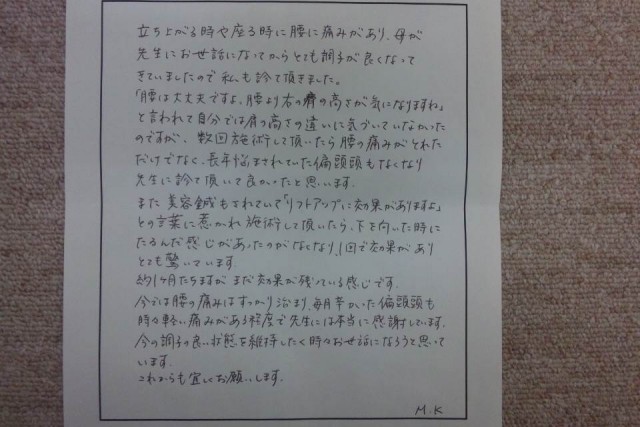 立ち上がる時や座る時に腰に痛みがあり、母が
先生にお世話になってからとても調子が良くなって
きていましたので私も診て頂きました。
「腰は大丈夫ですよ、腰より右の肩の高さが気になりますね」
と言われて自分では肩の高さの違いに気づいていなかった
のですが、数回施術して頂いたら腰の痛みがとれた
だけでなく、長年悩まされていた偏頭頭もなくなり
先生に診て頂いて良かったと思います。
また美容鍼もされていて「リフトアップに効果がありますよ」
との言葉に惹かれ施術して頂いたら、下を向いた時に
たるんだ感じがあったのがなくなり、1回で効果があり
とても驚いています。
約1ヶ月たちますがまだ効果が残っている感じです。
今では腰の痛みはすっかり治まり、毎月辛かった偏頭頭も
時々軽い痛みがある程度で先生には本当に感謝しています。
今の調子の良い状態を維持したく時々お世話になろうと思って
います。
これからも宜しくお願いします。
M.K